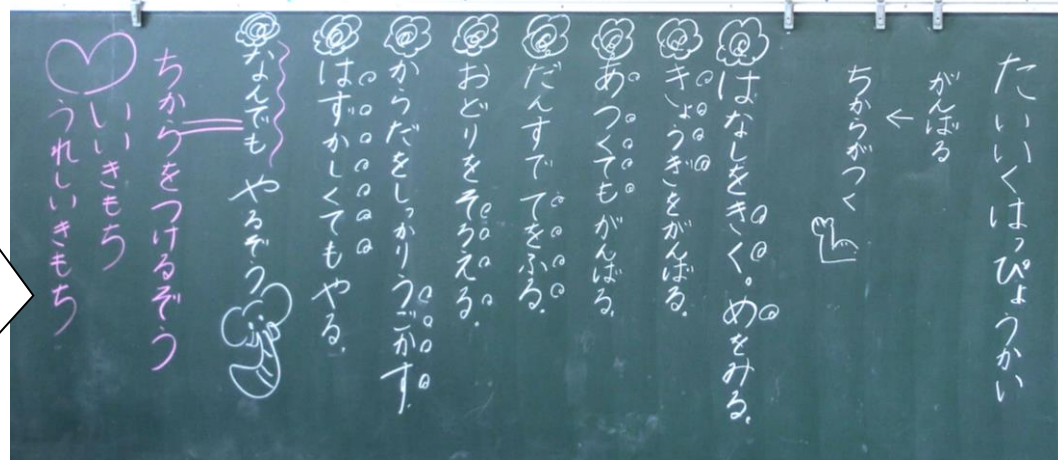 たいいくはっぴょうかい
がんばる
←
ちからがつく
はなしをきく。めをみる。
きょうぎをがんばる。
あつくてもがんばる。
だんすで てをふる。
おどりをそろえる。
からだをしっかりうごかす。
はずかしくても やる。
なんでも やるぞう
ちからをつけるぞう
いいきもち
うれしいきもち